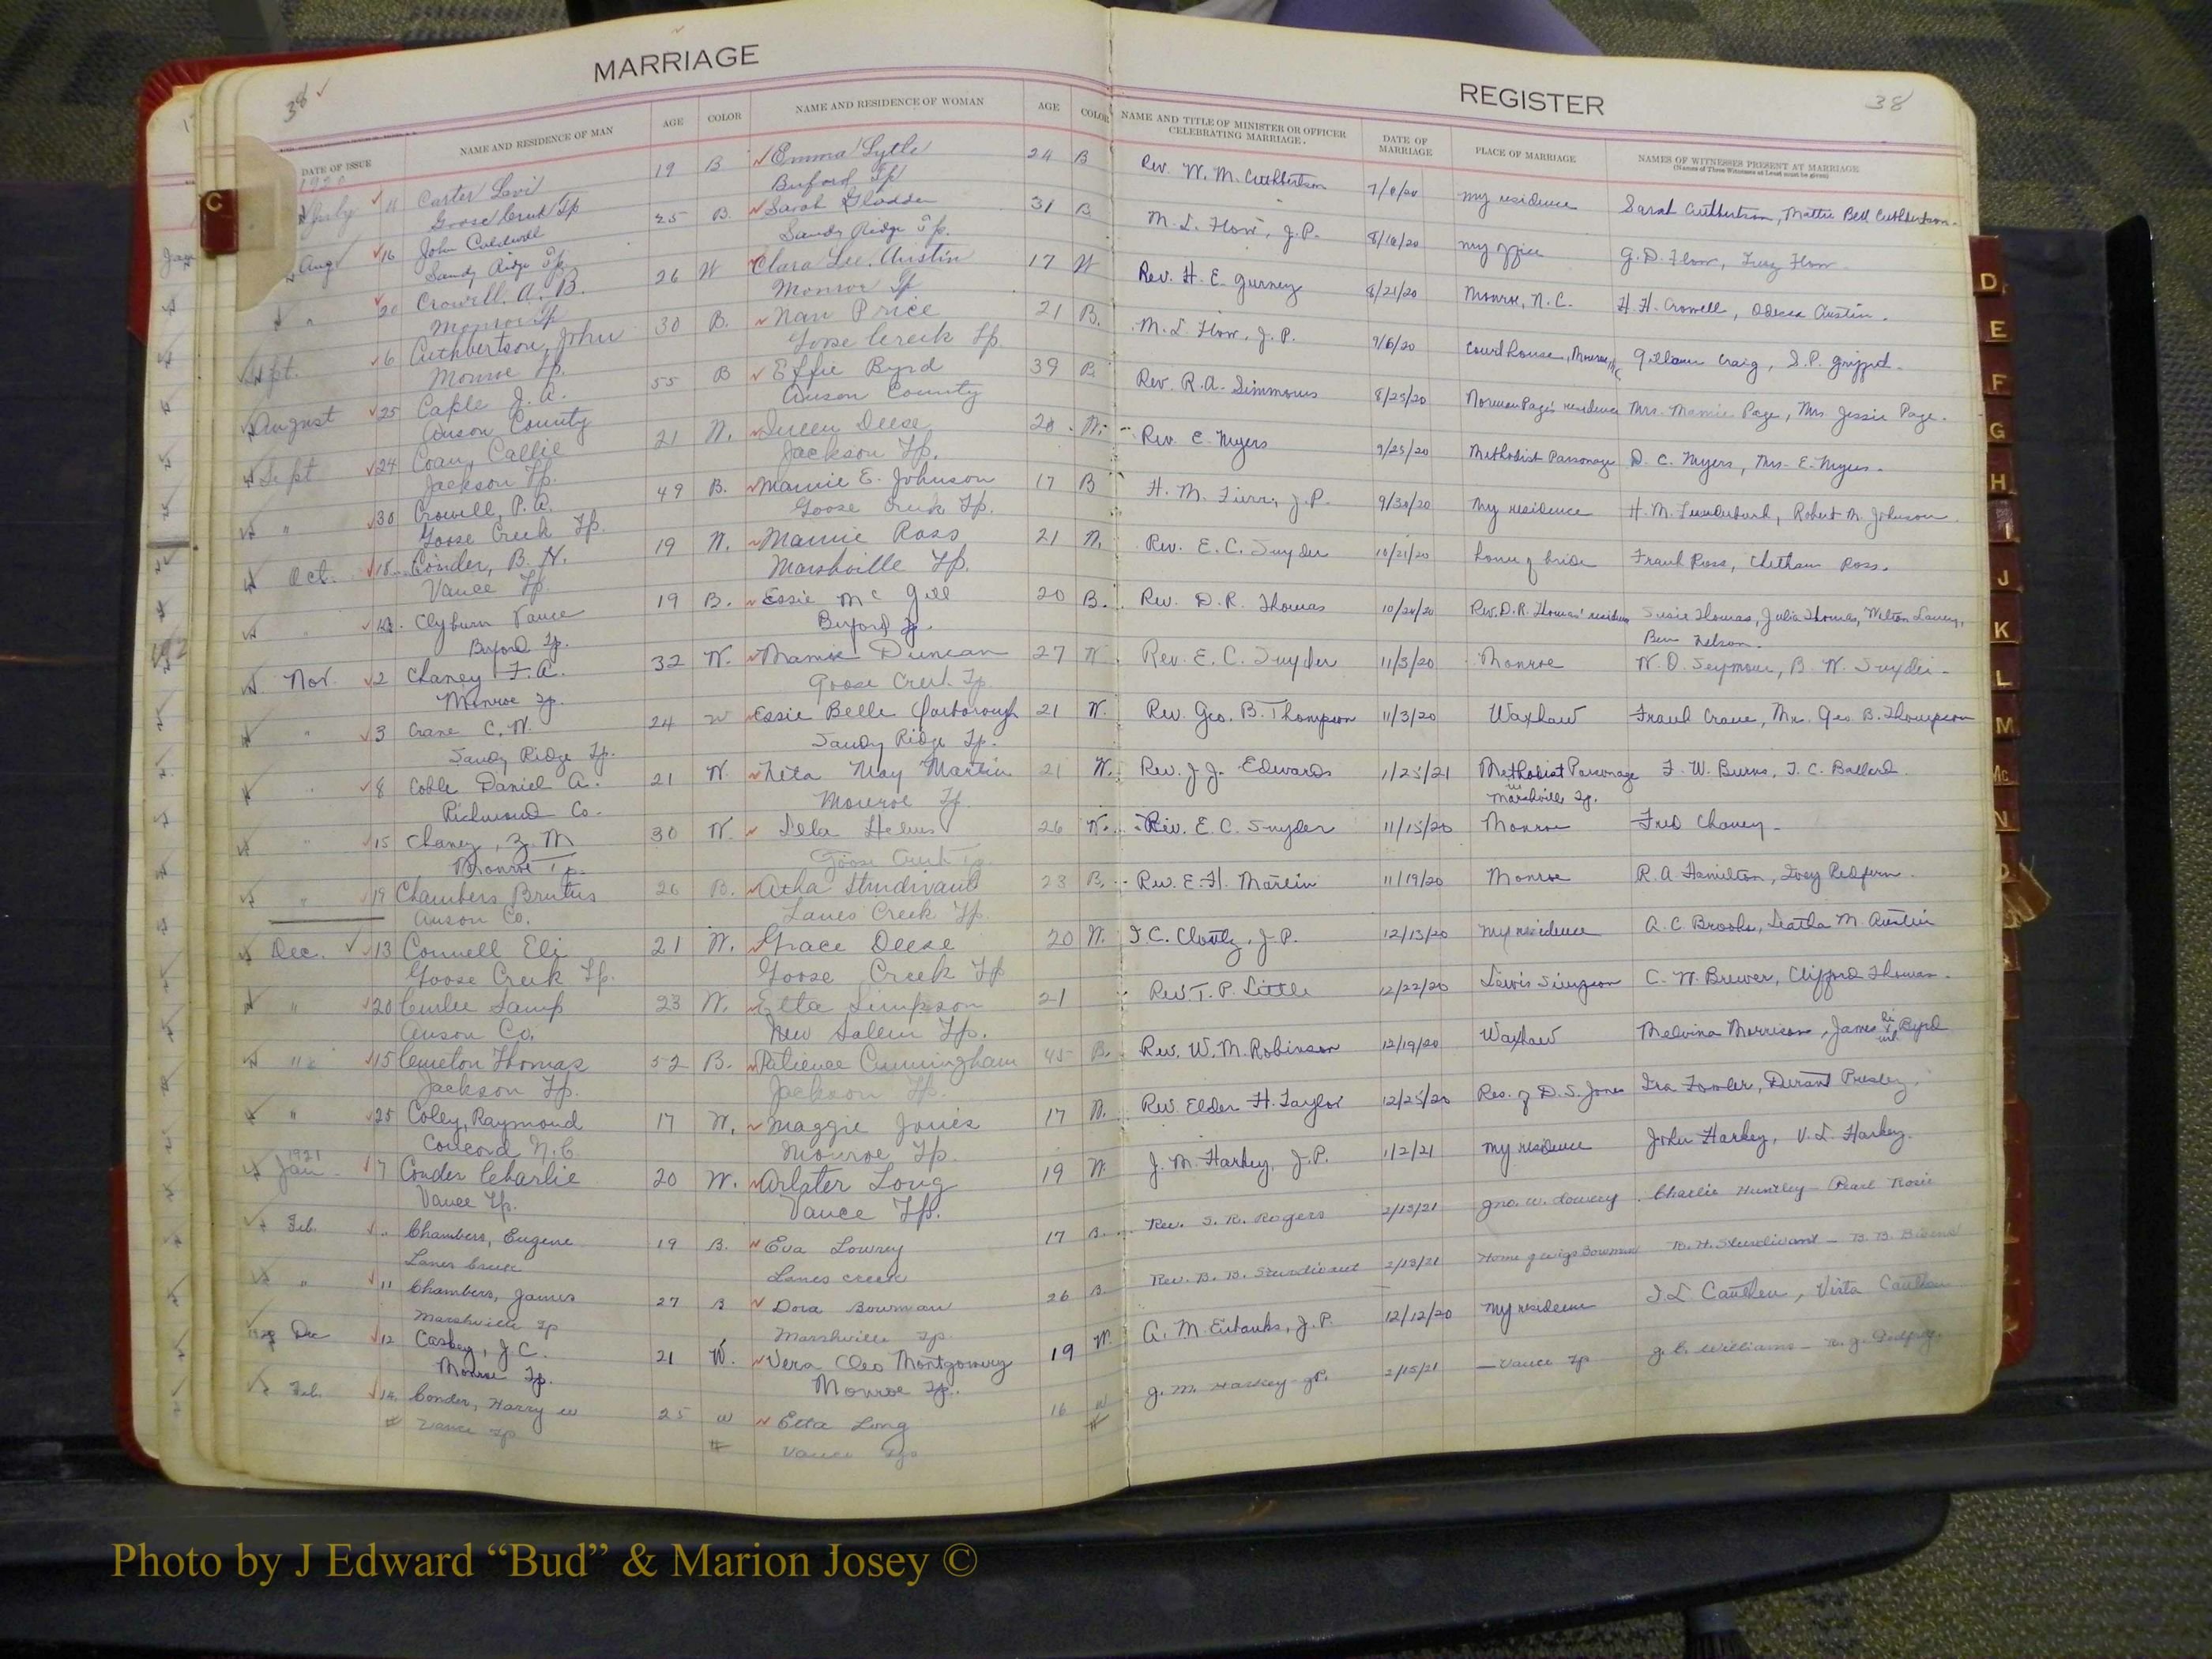 MARRIAGE
REGISTER
38
38
DATE OF ISSUE NAME AND RESIDENCE OF MAN AGE COLOR NAME AND RESIDENCE OF WOMAN AGE COLOR NAME AND TITLE OF MINISTER OR OFFICER CELEBRATING MARRIAGE. DATE OF MARRIAGE PLACE OF MARRIAGE NAMES OF WITNESSES PRESENT AT MARRIAGE
(Names of Three Witnesses at Least must be given)
1920
July Carter 19 B Emma Lytle 24 B Rev. W. M. Cuthbertson my residence Sarah Cuthbertson, Mattie Bell Cuthbertson
Goose Creek Tp Buford Tp
Aug 16 John Caldwell 25 B. Sarah Gladden 31 B M. L. Flow, J.P. 8/16/20 my office G. D. Flow, Flow
Sandy Ridge Tp Sandy Ridge Tp.
" 20 Crowell. A. B. 26 W Clara Lee Austin 17 W Rev. H. E. Gurney 8/21/20 Monroe, N.C. H. H. Crowell, Odessa Austin.
Monroe Tp Monroe Tp
Sept. 6 Cuthbertson, John 30 B. Nan Price 21 B. M. L. Flow, J.P. 9/6/20 Courthouse, Monroe, N.C. Craig, S. P.
Monroe Tp. Goose Creek Tp
August 25 Caple J. A. 55 B Effie Byrd 39 B. Rev. R. A. Simmons 8/25/20 Norman Page's residence Mrs. Mamie Page, Mrs Jessie Page.
Anson County Anson County
Sept 24 Coan, Callie 21 W. Queen Deese 20 W. Rev. E. Myers 9/25/20 Methodist Parsonage D. C. Myers, Mrs. E. Myers.
Jackson Tp. Jackson Tp.
" 30 Crowell, P. A. 49 B. Mamie E. Johnson 17 B H. M. J.P. 9/30/20 My residence H. M. Robert M. Johnson
Goose Creek Tp. Goose Creek Tp.
Oct. 18 Conder, B. H. 19 W. Mamie Ross 21 W. Rev. E. C. Snyder 10/21/20 home of bride Frank Ross, Ross.
Vance Tp. Marshville Tp.
" Clyburn Vance 19 B. Essie McGill 20 B. Rev. D. R. Thomas 10/24/20 Rev. D. R. Thomas' residence Susie Thomas, Julia Thomas, Wilton Laney,
Buford Tp. Buford Tp. Ben Nelson.
Nov. 2 Chaney F. A. 32 W. Mamie Duncan 27 W Rev. E. C. Snyder 11/3/20 Monroe W. O. Seymour, B. W. Snyder
Monroe Tp. Goose Creek Tp
" 3 Crane C. W. 24 W Essie Belle Yarborough 21 W. Rev. Geo. B. Thompson 11/3/20 Waxhaw Frank Crane, Mrs. Geo B. Thompson
Sandy Ridge Tp. Sandy Ridge Tp.
" 8 Coble Daniel A. 21 W. Neta May Martin 21 W. Rev. J. J. Edwards 1/25/21 Methodist Parsonage F. W. Burns, T. C. Ballard.
Richmond Co. Monroe Tp. Marshville Tp.
" 15 Chaney, Z. M 30 W. Lela Helms 26 W. Rev. E. C. Snyder 11/15/20 Monroe Fred Chaney
Monroe Tp. Goose Creek Tp
" 19 Chambers Brutus 26 B. Atha Sturdivant 23 B. Rev. E. H. Martin 11/19/20 Monroe R. A Hamilton, Redfern.
Anson Co. Lanes Creek Tp.
Dec. 13 Connell Eli 21 W. Grace Deese 20 W. T. C. Clontz, J.P. 12/13/20 my residence A. C. Brooks, Leatha M. Austin
Goose Creek Tp. Goose Creek Tp
" 20 Curlee Samp 23 W. Etta Simpson 21 Rev. T. P. Little 12/22/20 Lewis Simpson C. W. Brewer, Clifford Thomas.
Anson Co. New Salem Tp.
" 15 Cureton Thomas 52 B. Patience Cunningham 45 B. Rev. W. M. Robinson 12/19/20 Waxhaw Melvina Morrison, James Byrd
Jackson Tp. Jackson Tp.
" 25 Coley, Raymond 17 W. Maggie Jones 17 W. Rev. Elder H. Taylor 12/25/20 Res. of D. S. Jones Ira Fowler, Durant Presley.
Concord N.C. Monroe Tp.
1921
Jan 7 Conder Charlie 20 W. Arlster Long 19 W J. M. Harkey, J.P. 1/2/21 my residence John Harkey, V. L. Harkey.
Vance Tp. Vance Tp.
Feb. Chambers, Eugene 19 B. Eva Lowrey 17 B. Rev. S. R. Rogers 2/13/21 Jno. W. Lowery Charlie Huntley Pearl
Lanes Creek Lanes Creek
" 11 Chambers, James 27 B Dora Bowman 26 B Rev. B. B. Sturdivant 2/13/21 Home of Bowman B. H. Sturdivant
Marshville Tp Marshville Tp.
1920 Dec 12 Caskey, J. C. 21 W. Vera Cleo Montgomery 19 W. A. M. Eubanks, J.P. 12/12/20 my residence J. L Cauthen, Cauthen
Monroe Tp. Monroe Tp.
Feb. 14 Conder, Harry W 25 W Etta Long 16 W J. M. Harkey JP. 2/15/21 Vance Tp J. E. Williams
# Vance Tp # Vance Tp #
C
D
E
F
G
H
I
J
K
L
M
Mc
N
O
Photo by J Edward “Bud” & Marion Josey ©